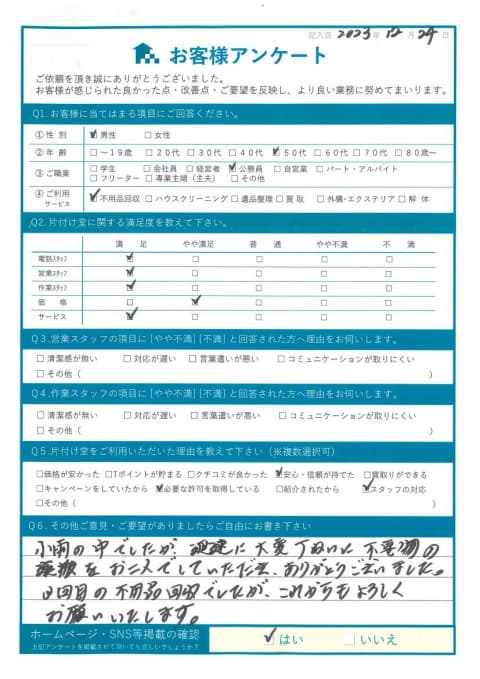 記入日 2023年 12月 29日
お客様アンケート
ご依頼を頂き誠にありがとうございました。
お客様が感じられた良かった点・改善点・ご要望を反映し、より良い業務に努めてまいります。
Q1. お客様に当てはまる項目にご回答ください。
①性 別 ☑男性 □女性
②年 齢 □～19歳 □20代 □30代 □40代 ☑50代 □60代 □70代 □80歳～
③ご職業 □学生 □会社員 □経営者 ☑公務員 □自営業 □パート・アルバイト
□フリーター □専業主婦（主夫） □その他
④ご利用サービス ☑不用品回収 □ハウスクリーニング □遺品整理 □買取 □外構・エクステリア □解体
Q2. 片付け堂に関する満足度を教えて下さい。
満足 やや満足 普通 やや不満 不満
電話スタッフ ☑ □ □ □ □
営業スタッフ ☑ □ □ □ □
作業スタッフ ☑ □ □ □ □
価 格 □ ☑ □ □ □
サービス ☑ □ □ □ □
Q3. 営業スタッフの項目に[やや不満][不満]と回答された方へ理由をお伺いします。
□清潔感が無い □対応が遅い □言葉遣いが悪い □コミュニケーションが取りにくい
□その他（ ）
Q4. 作業スタッフの項目に[やや不満][不満]と回答された方へ理由をお伺いします。
□清潔感が無い □対応が遅い □言葉遣いが悪い □コミュニケーションが取りにくい
□その他（ ）
Q5. 片付け堂をご利用いただいた理由を教えて下さい（※複数選択可）
□価格が安かった □Tポイントが貯まる □クチコミが良かった ☑安心・信頼が持てた □買取りができる
□キャンペーンをしていたから ☑必要な許可を取得している □紹介されたから ☑スタッフの対応
□その他（ ）
Q6. その他ご意見・ご要望がありましたらご自由にお書き下さい
小雨の中でしたが、迅速に大変丁ねいに不要物の
をお二人でしていただき、ありがとうございました。
回目の不用品回収でしたが、これからもよろしく
お願いいたします。
ホームページ・SNS等掲載の確認 ☑はい □いいえ
上記アンケートを掲載させて頂いても宜しいでしょうか？